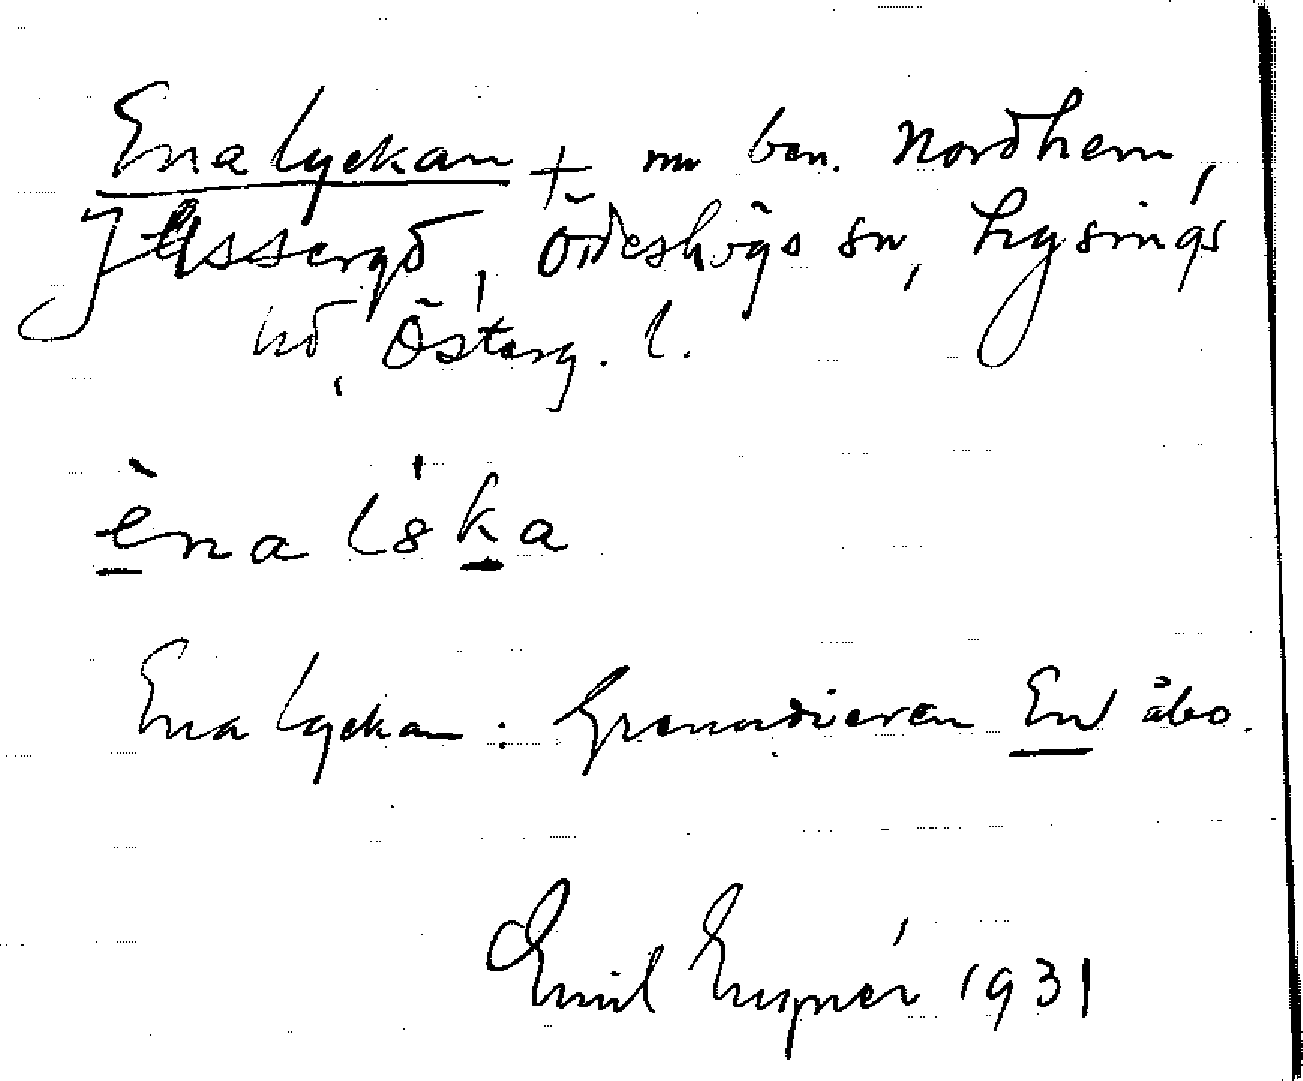 Ena lyckan + nu ben. Nordhem,
Jussergd, Ödeshögs sn, Lysings
hd, Österg. l.
èna lska
Ena lyckan. Grenadieren En åbo.
Emil 1931